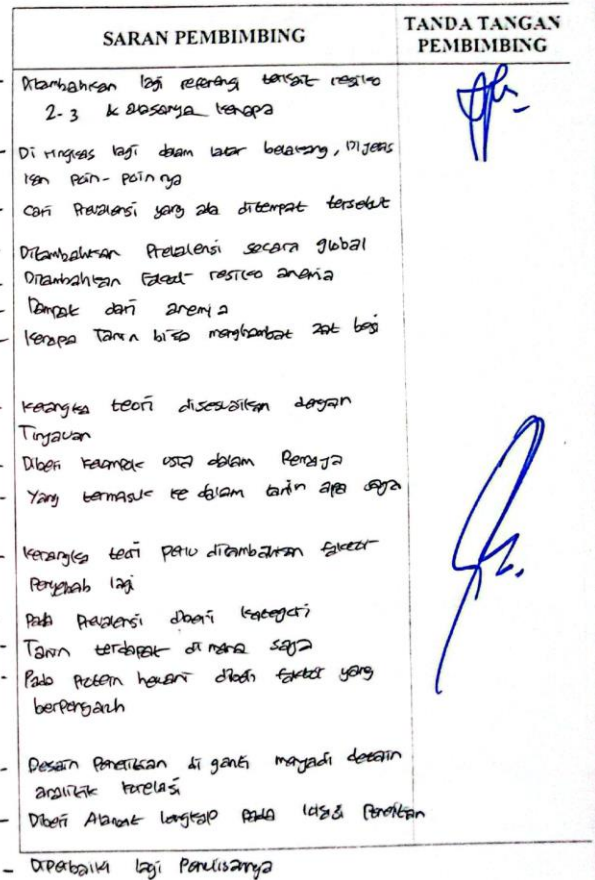 SARAN PEMBIMBING
TANDA TANGAN
PEMBIMBING
- Ditambahkan lagi referensi terkait resiko
2-3 & alasanya kenapa
- Di ringkas lagi dalam latar belakang, Di jelas
kan poin-poin nya
- Cari Prevalensi yang ada ditempat tersebut
Ditambahkan Prevalensi secara global
- Ditambahkan faktor resiko anemia
- Dampak dari anemia
- Kenapa Tanin bisa menghambat zat besi
- Kerangka teori disesuaikan dengan
Tinjauan
- Diberi kelompok usia dalam Remaja
- Yang termasuk ke dalam tanin apa saja
- Kerangka teori perlu ditambahkan faktor
Penyebab lagi
Pada Prevalensi diberi kategori
- Tanin terdapat di mana saja
- Pada Protein hewani diberi faktor yang
berpengaruh
- Desain Penelitian di ganti menjadi desain
analitik korelasi
- Diberi Alamat lengkap Pada lokasi Penelitian
- Diperbaiki lagi Penulisannya